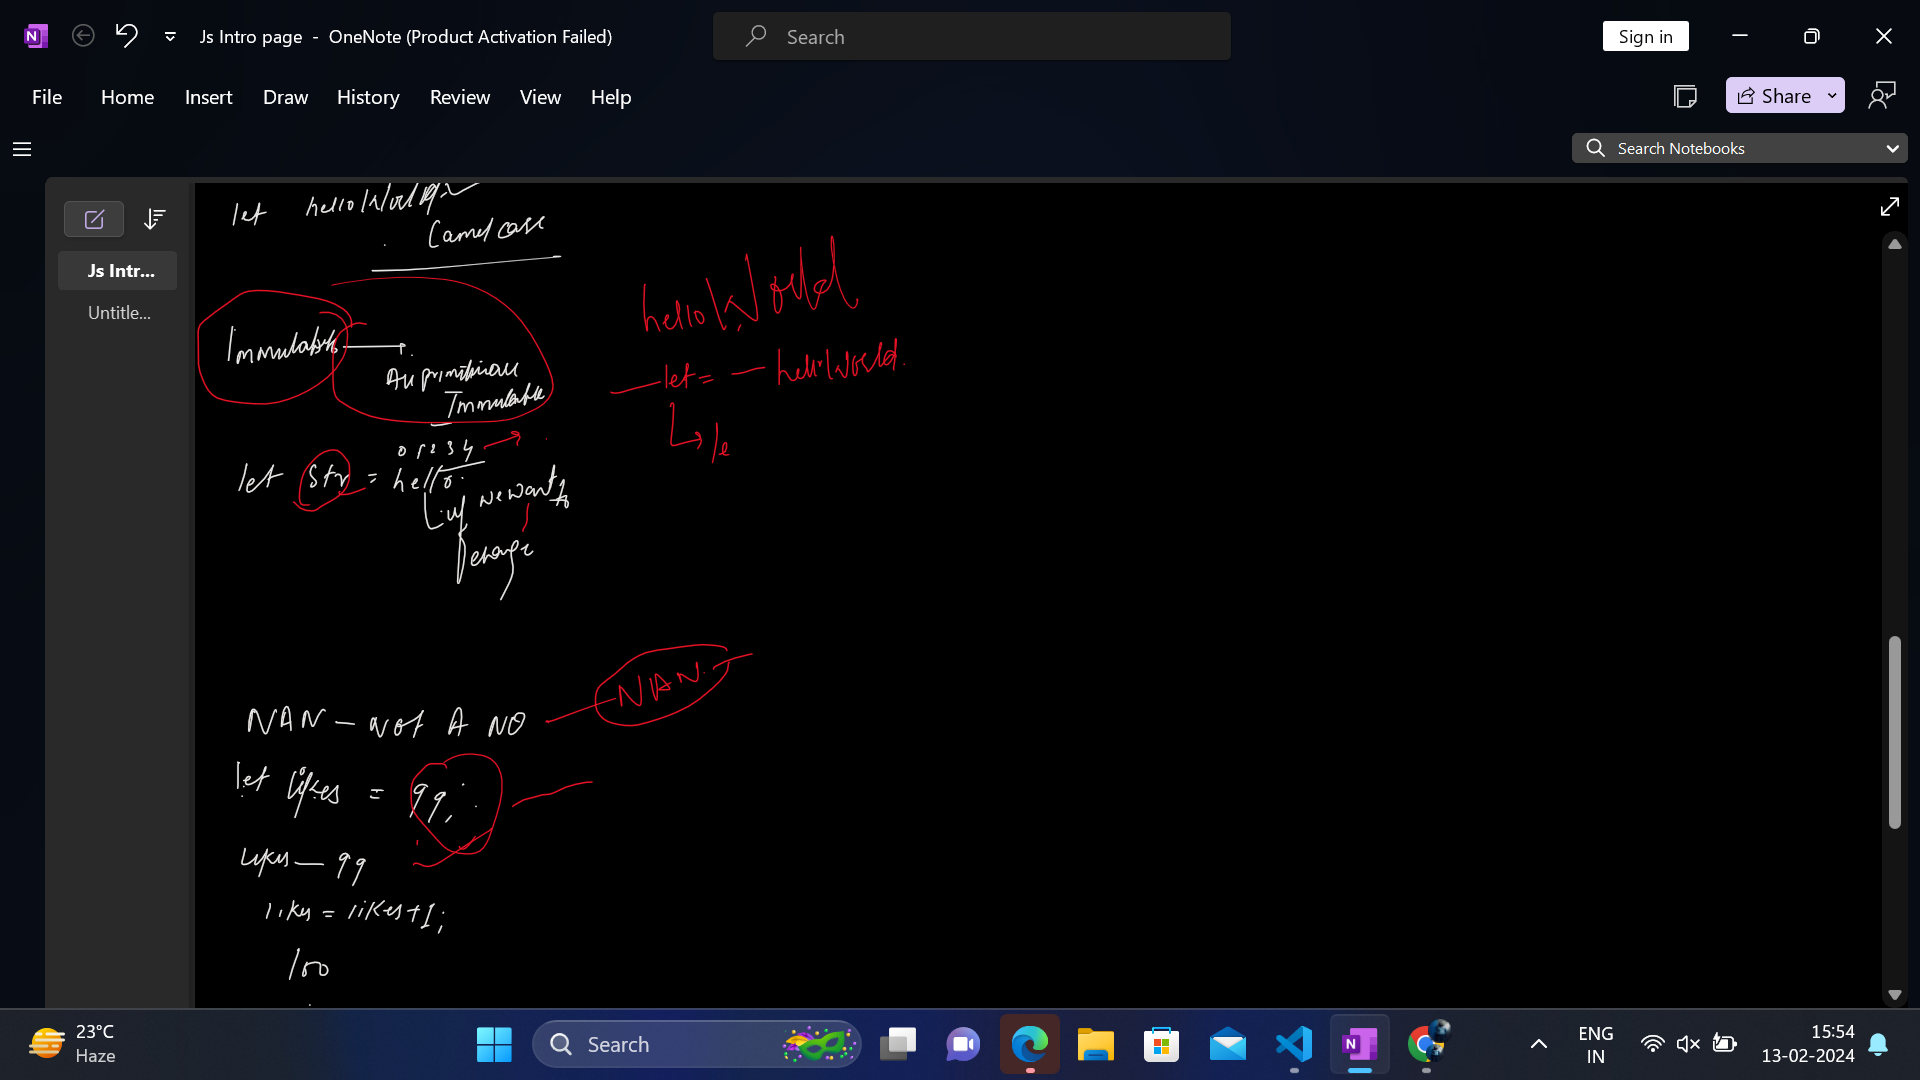 Js Intro page - OneNote (Product Activation Failed)
Search
Sign in
File Home Insert Draw History Review View Help
Share
Search Notebooks
Js Intr...
Untitle...
let helloWorld
Camel case
Immutable
All primitives
Immutable
helloWorld
let = — helloWorld.
le
0 1 2 3 4
let str = hello
if we want to
change
NAN
NAN — Not A NO
let likes = 99;
likes — 99
likes = likes+1;
100
23°C
Haze
Search
ENG
IN
15:54
13-02-2024